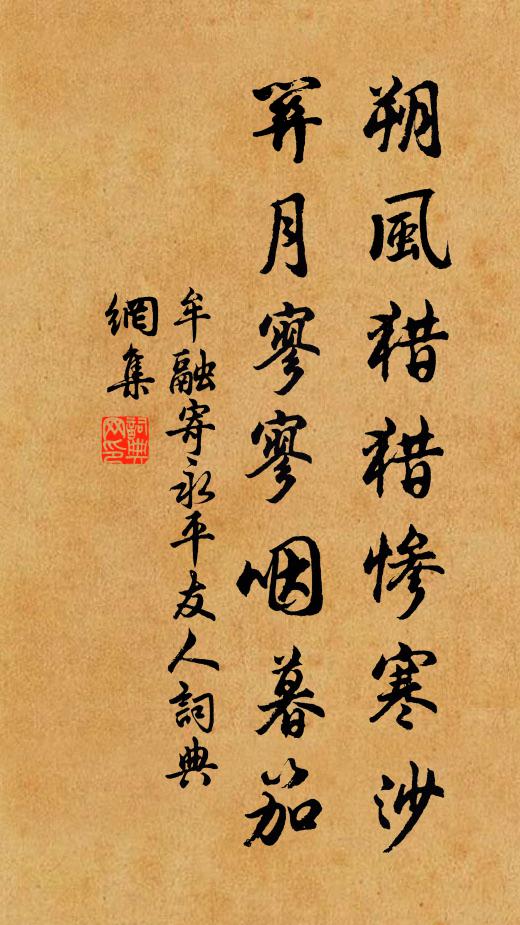 朔風猎猎慘寒沙
關月寥寥咽暮笳
牟融寄永平友人詞典
網集
詞典网印